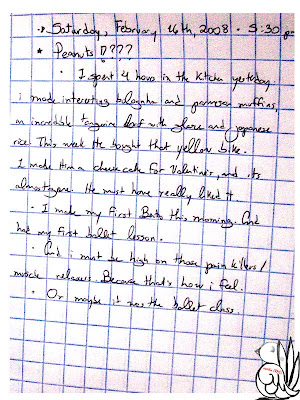 → Saturday, February 16th, 2008 - 5:30 p-
* Peanuts !????
• I spent 4 hours in the kitchen yesterday
i made interesting bologna and parmesan muffins,
an incredible tangerine loaf with glaze and japonese
rice. This week He bought that yellow bike.
I made Him a cheesecake for Valentine, and its
almost gone. He must have really liked it.
• I made my First Batis this morning. And
had my first ballet lesson.
• And i must be high on those pain killers /
muscle relaxers. Because that's how i feel.
• Or maybe it was the ballet class.